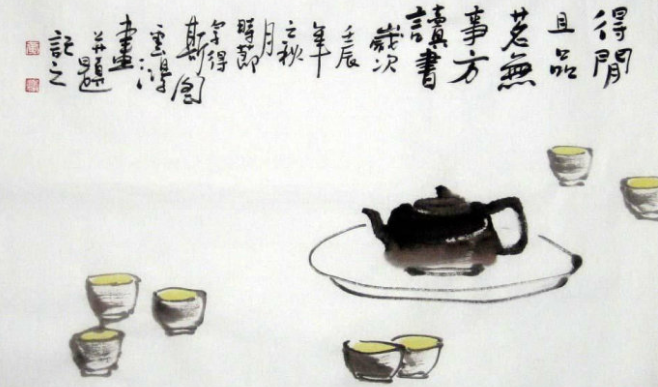 得閒
且品
茗無
事方
讀書
歲次
壬辰
年
之秋
月
時節
寫得
斯圖
雲濤
畫
并題
記之